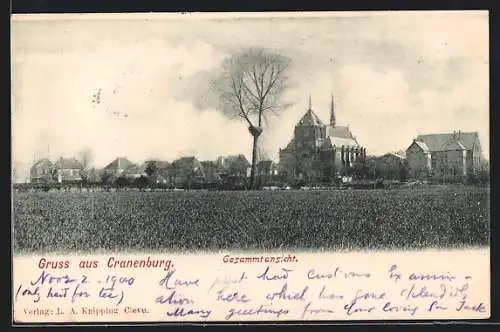 Gruss aus Cranenburg. Gesammtansicht
Novr. 2. 1900 Have just had customs Examin-
(only had for tea) ation here which has gone splendid
Many greetings from Your loving Son Jack
Verlag: L. A. Knipping Cleve.